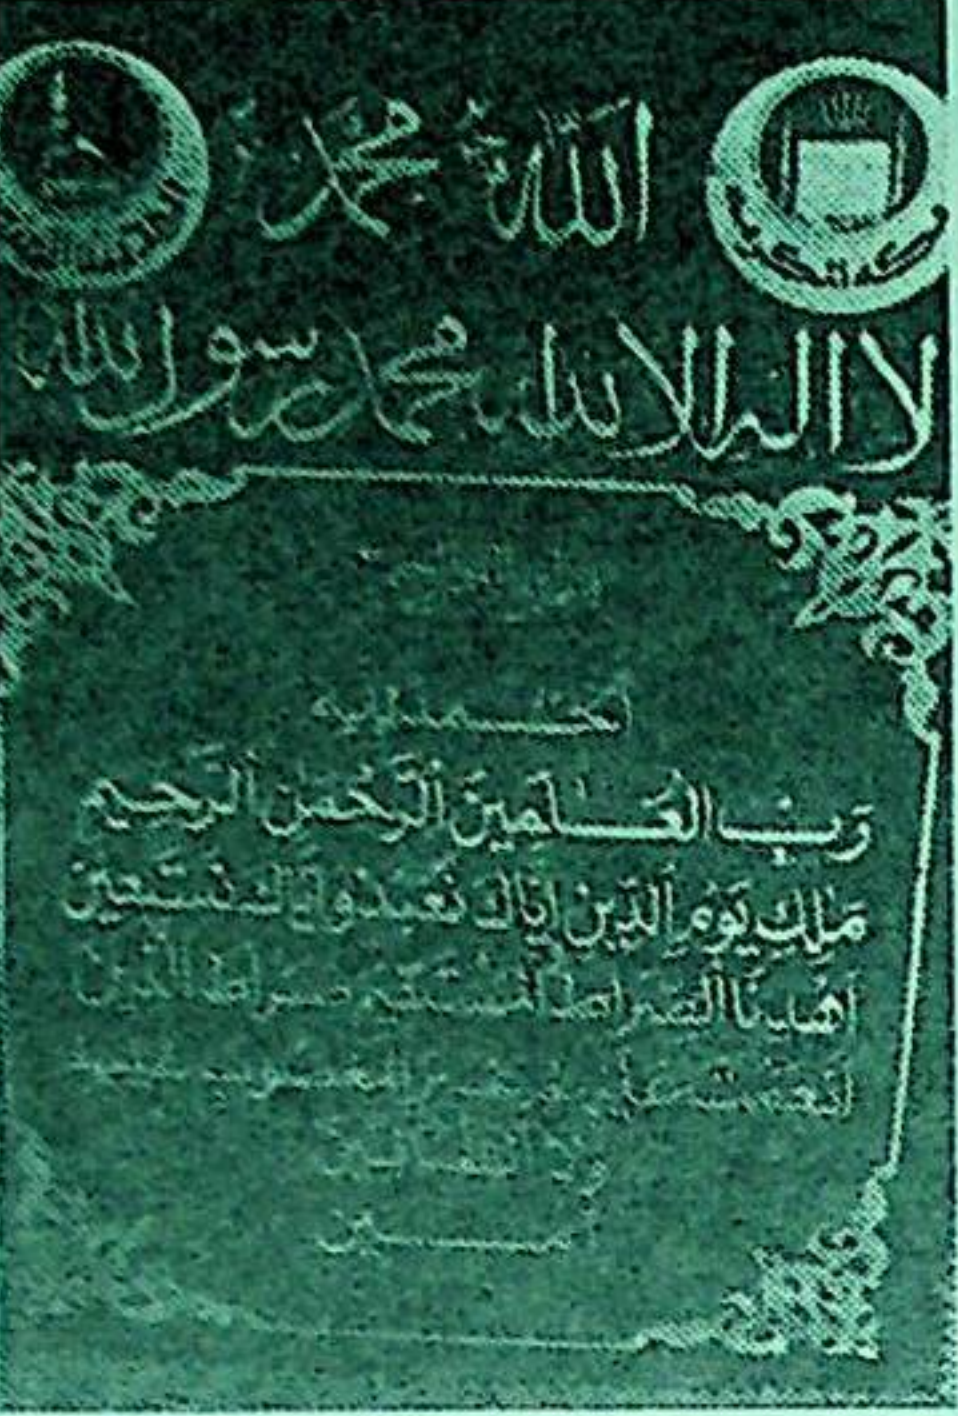 الله محمد
لا اله الا الله محمد رسول الله
الحمد لله
رب العالمين الرحمن الرحيم
ملك يوم الدين اياك نعبد واياك نستعين
اهدنا الصراط المستقيم صراط الذين
انعمت عليهم غير المغضوب عليهم
ولا الضالين